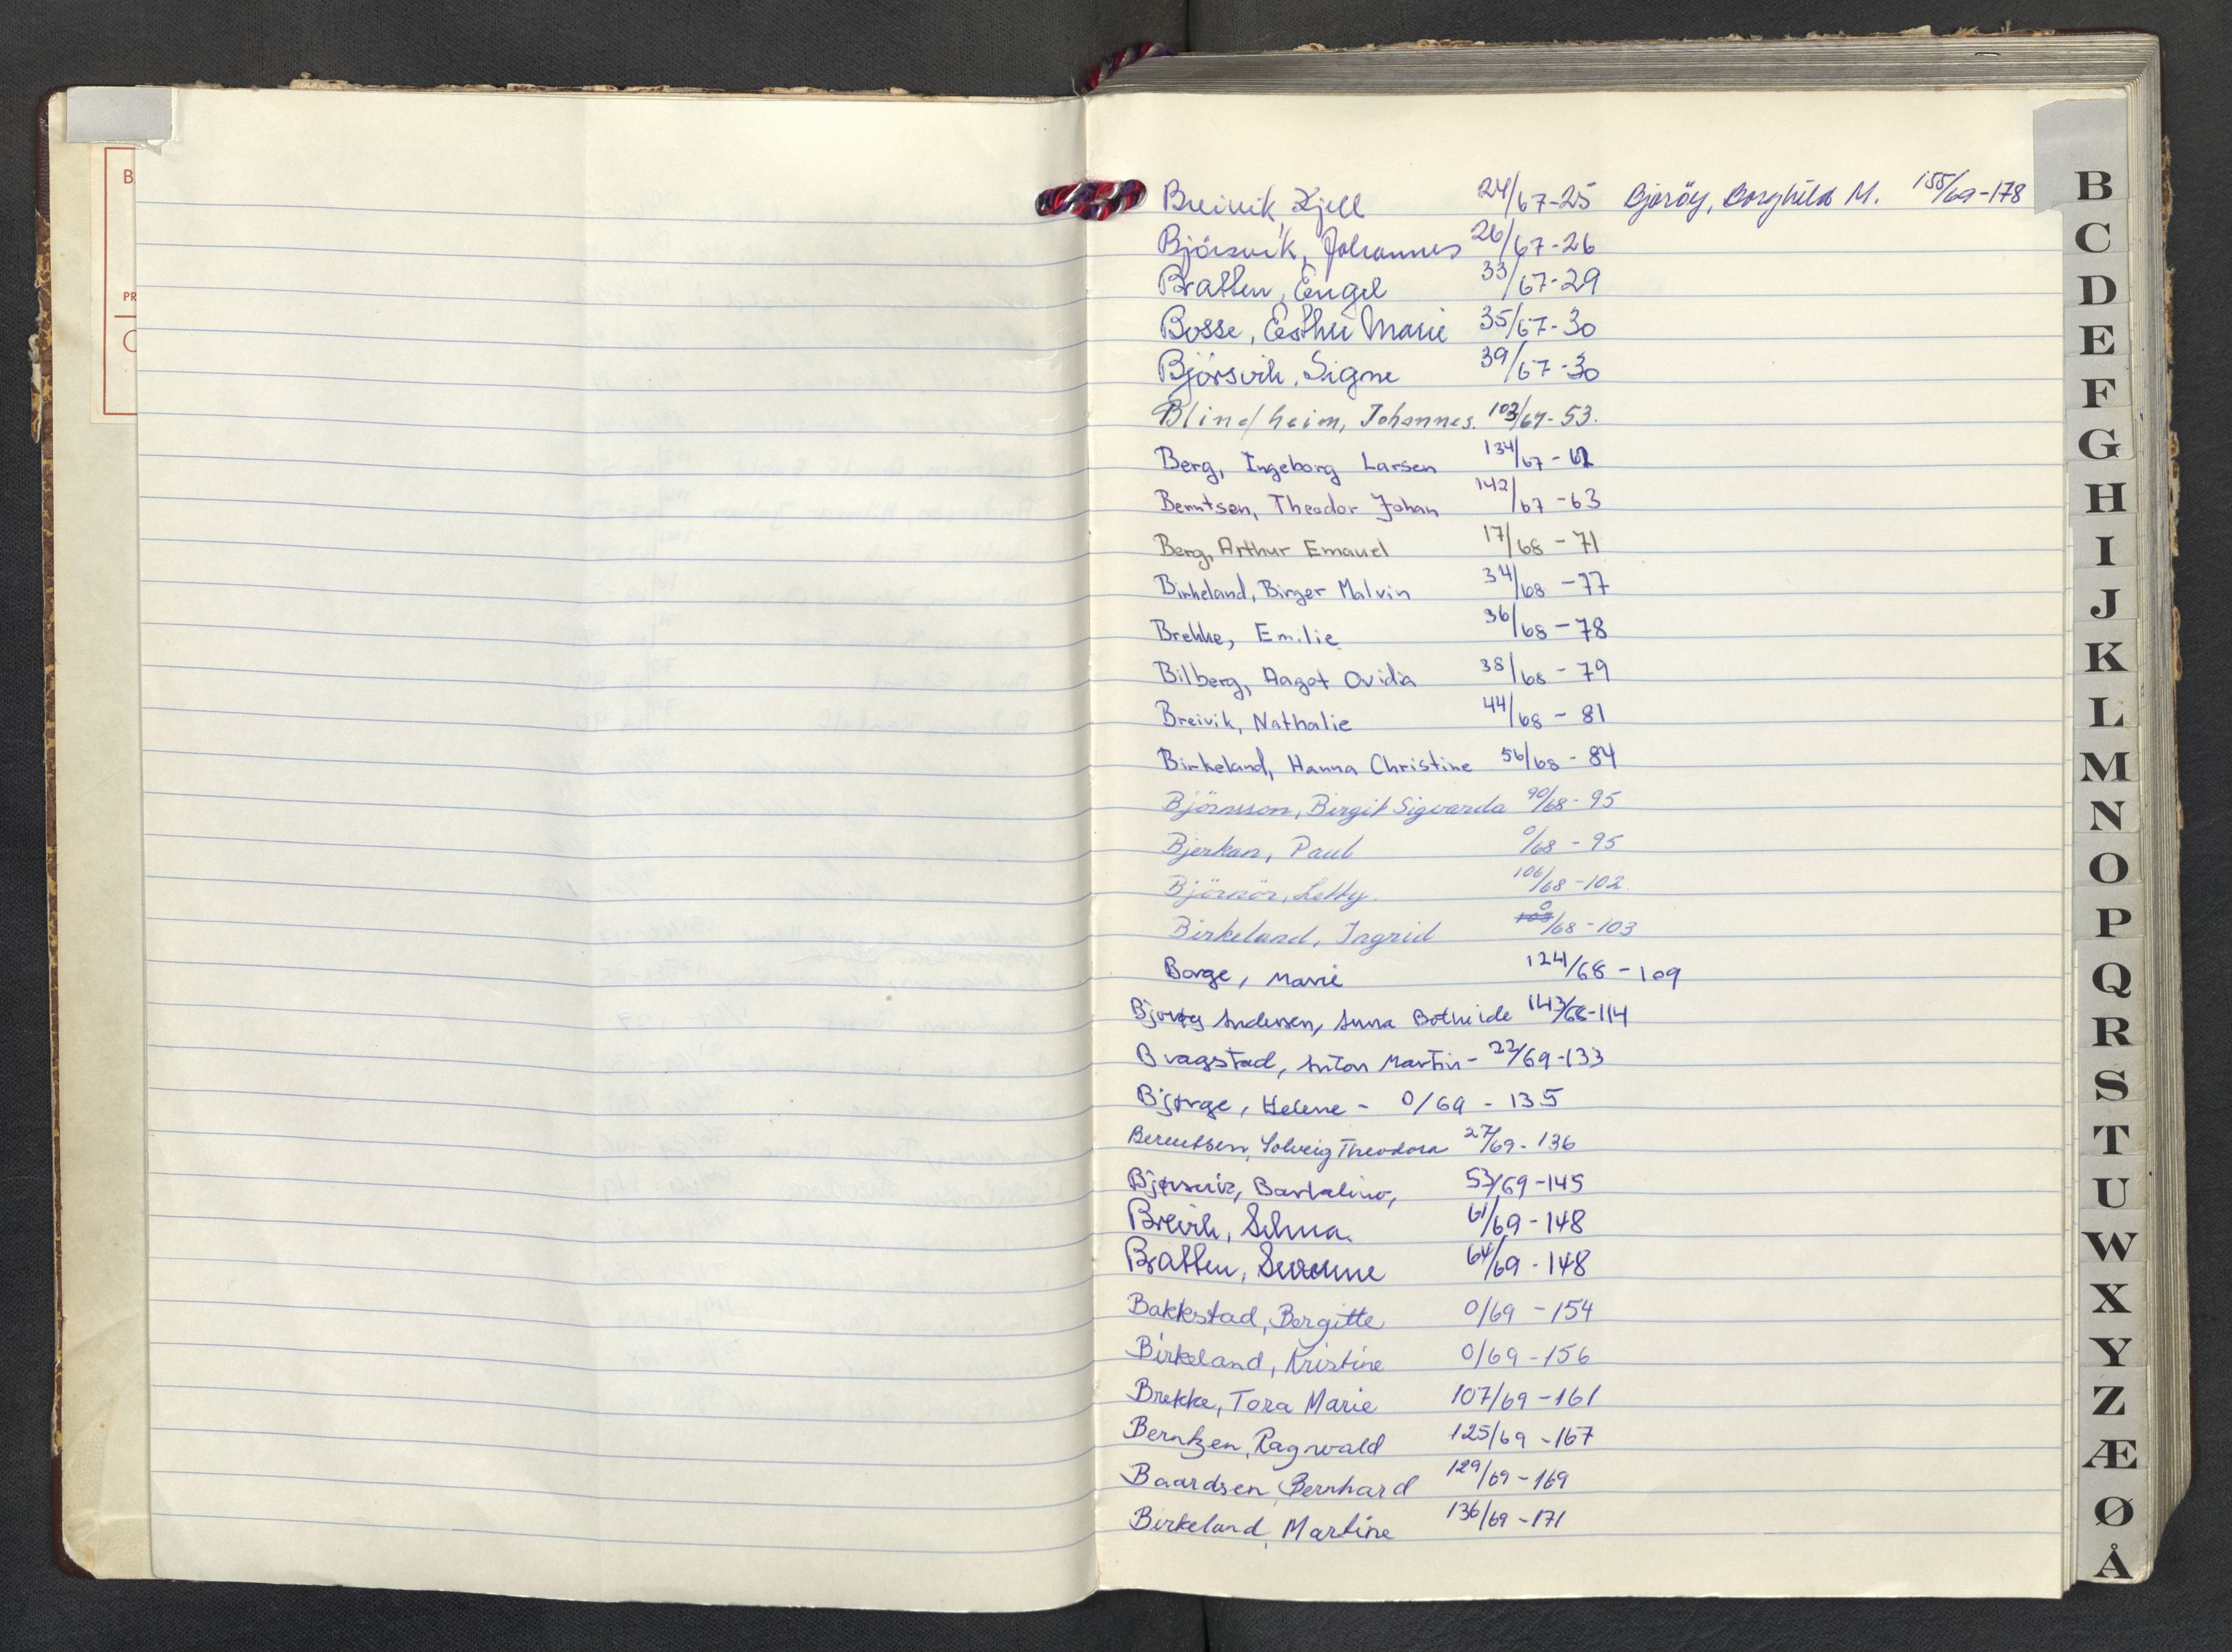 B
PR
Breivik, Kjell 24/67-25 Bjorøy, Borghild M. 155/69-178
Björsvik, Johannes 26/67-26
Bratten, Engel 33/67-29
Bosse, Esther Marie 35/67-30
Björsvik, Signe 39/67-30
Blindheim, Johannes. 103/67-53.
Berg, Ingeborg Larsen 134/67-62
Berntsen, Theodor Johan 142/67-63
Berg, Arthur Emauel 17/68-71
Birkeland, Birger Malvin 34/68-77
Brekke, Emilie 36/68-78
Bilberg, Aagot Ovidia 38/68-79
Breivik, Nathalie 44/68-81
Birkeland, Hanna Christine 56/68-84
Björnsson, Birgit Sigvarda 90/68-95
Bjerkan, Paul 0/68-95
Björnör, Letty. 106/68-102.
Birkeland, Ingrid 0/68-103
Borge, Marie 124/68-109
Bjorøy Andersen, Anna Bothilde 143/68-114
Bragstad, Anton Martin - 22/69-133
Bjørge, Helene - 0/69-135
Berentsen, Solveig Theodora 27/69-136
Bjørsvik, Bartaline, 53/69-145
Breivik, Selma. 61/69-148
Bratten, Susanne 64/69-148
Bakkstad, Bergitte 0/69-154
Birkeland, Kristine 0/69-156
Brekke, Tora Marie 107/69-161
Berntzen, Ragnvald 125/69-167
Baardsen, Bernhard 129/69-169
Birkeland, Martine 136/69-171
B
C
D
E
F
G
H
I
J
K
L
M
N
O
P
Q
R
S
T
U
W
X
Y
Z
Æ
Ø
Å